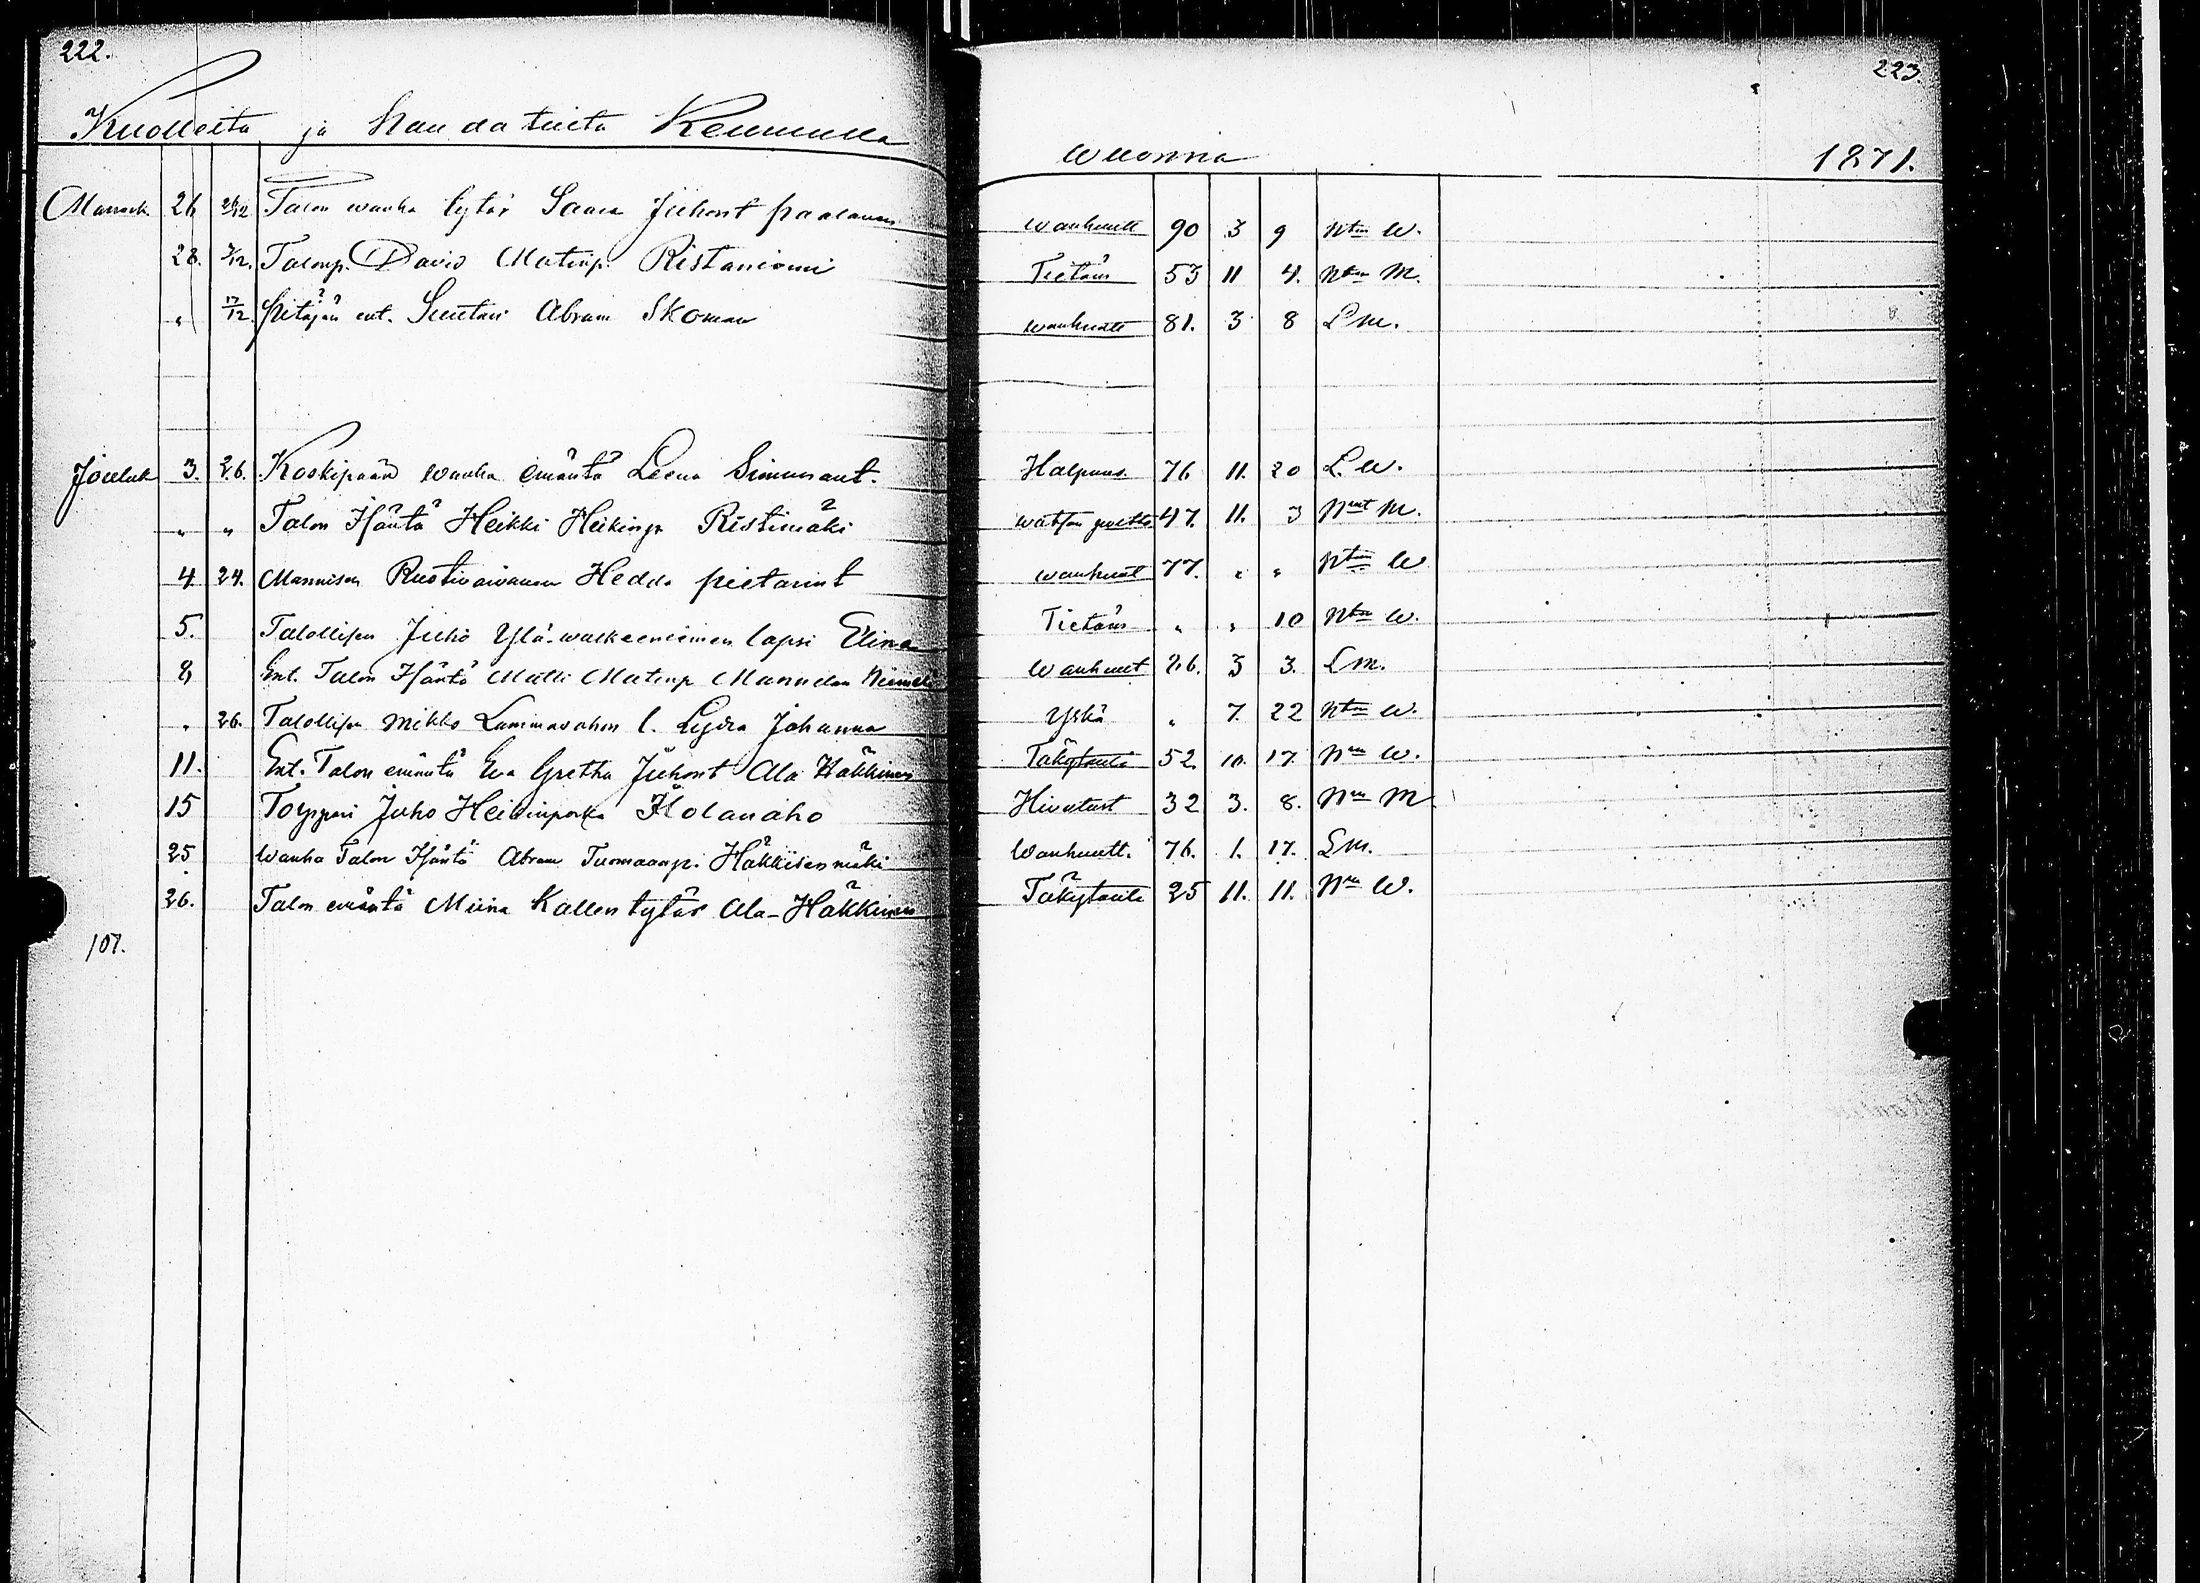 222.
223.
Kuolleita ja haudatuita Keuruulla
wuonna 1871.
Marrask. 26 26/12 Talon wanha tytär Saara Juhont Paalanen wanhuutt 90 3 9 Ntm W.
28. 3/12. Talonp. David Matinp. Ristaniemi Tietäm 53 11 4. Ntm M.
" 17/12. Pitäjän ent. Suutari Abram Skoman wanhuutt 81. 3 8 Lm.
Jouluk 3. 26. Koskipään wanha emäntä Leena Simunant. Halpaus 76 11. 20 L. W.
" " Talon Isäntä Heikki Heikinp Ristimäki watsan 47. 11. 3 M.
4. 24. Mannisen Ruotivaivanen Hedda Pietarint wanhuut 77. " " Ntm W
5. Talollisen Juho Ylä-walkeeniemen lapsi Elina Tietäm " " 10 Ntm W.
8 Ent. Talon Isäntä Matti Matinp Mannilan Wanhuut 86. 3 3. Lm.
" 26. Talollisen Mikko Lamminahon l. Lydia Johanna Yskä " 7. 22 Ntm W.
11. Ent. Talon emäntä Eva Gretha Juhont Ala Häkkinen Täkytauti 52. 10. 17. Nm W.
15 Torppari Juho Heikinpoika Hölanaho Hivutust 32 3. 8. Nm M
25 Wanha Talon Isäntä Abram Tuomaanp. Häkkisenmäki Wanhuutt. 76. 1. 17. Lm.
26. Talon emäntä Miina Kallen tytär Ala-Häkkinen Täkytauti 25 11. 11. Nm W.
107.